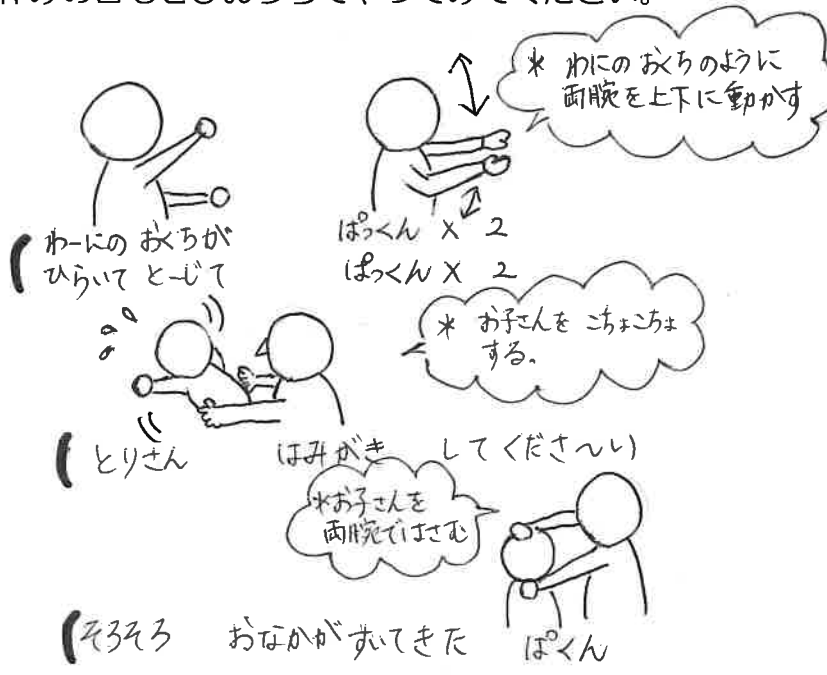 * わにの おくちのように
両腕を上下に動かす
わーにの おくちが
ひらいて とーじて
ぱっくん × 2
ぱっくん × 2
* お子さんを こちょこちょ
する。
とりさん はみがき してくださ〜い
*お子さんを
両腕ではさむ
そろそろ おなかが すいてきた ぱくん